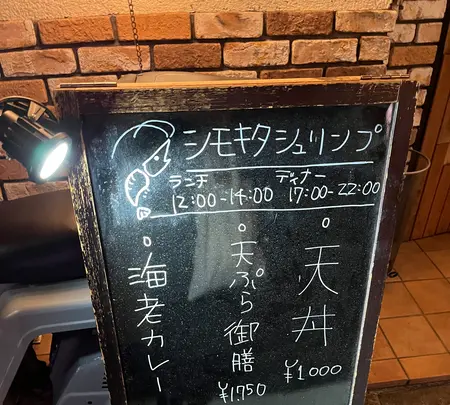 シモキタシュリンプ
ランチ ディナー
12:00-14:00 17:00-22:00
。天丼
¥1000
。天ぷら御膳
¥1,750
。海老カレー